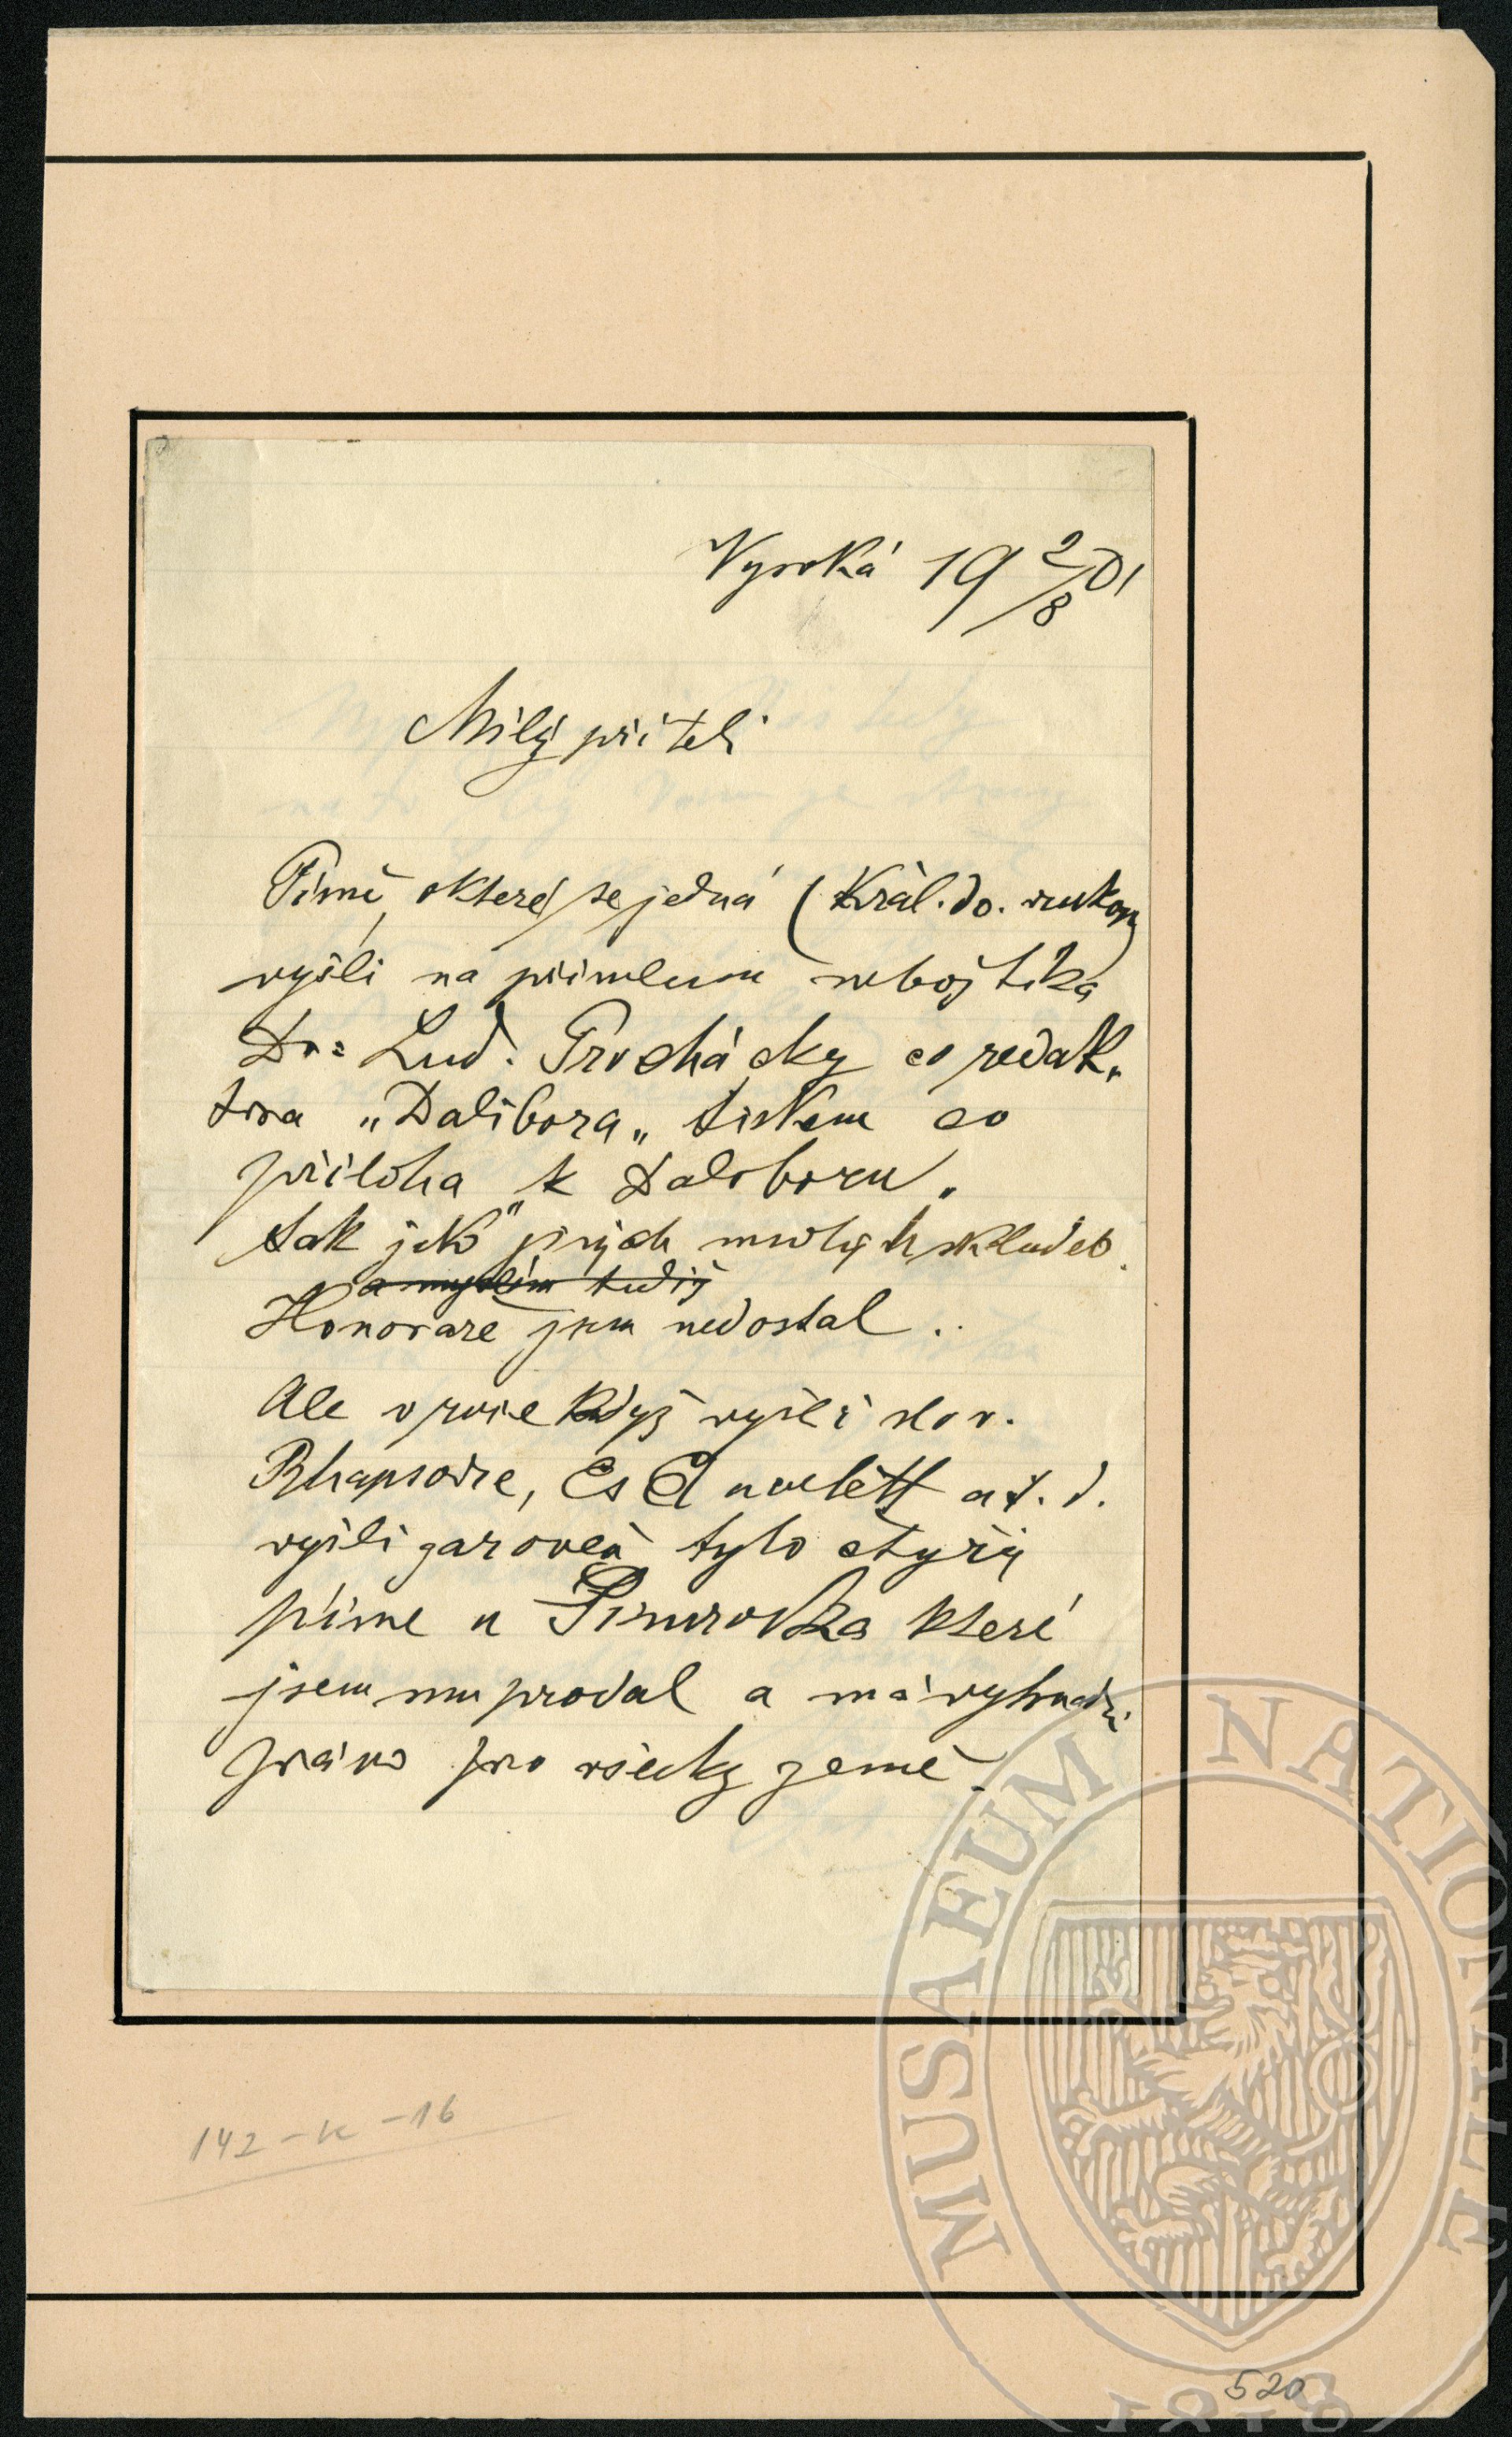 Vysoká 19 2/8 01
Milý příteli
Písně, o které se jedná (Král. do. rukop)
vyšli na přímluvu nebožtíka
Dr: Lud. Procházky co redak„
tora „Dalibora„ tiskem co
příloha k Daliboru„
tak jako jiných mných skladeb.
a myslím tudíž
Honorare jsem nedostal .
Ale v roce když vyšli slov.
Rhapsodie, Es quartett a t. d.
vyšli zároveň tyto čtyři
písně u Simrocka které
jsem mu prodal a má výhradní
právo pro všecky země.
142-K-16
MUSAEUM NATIONALE
1818
520